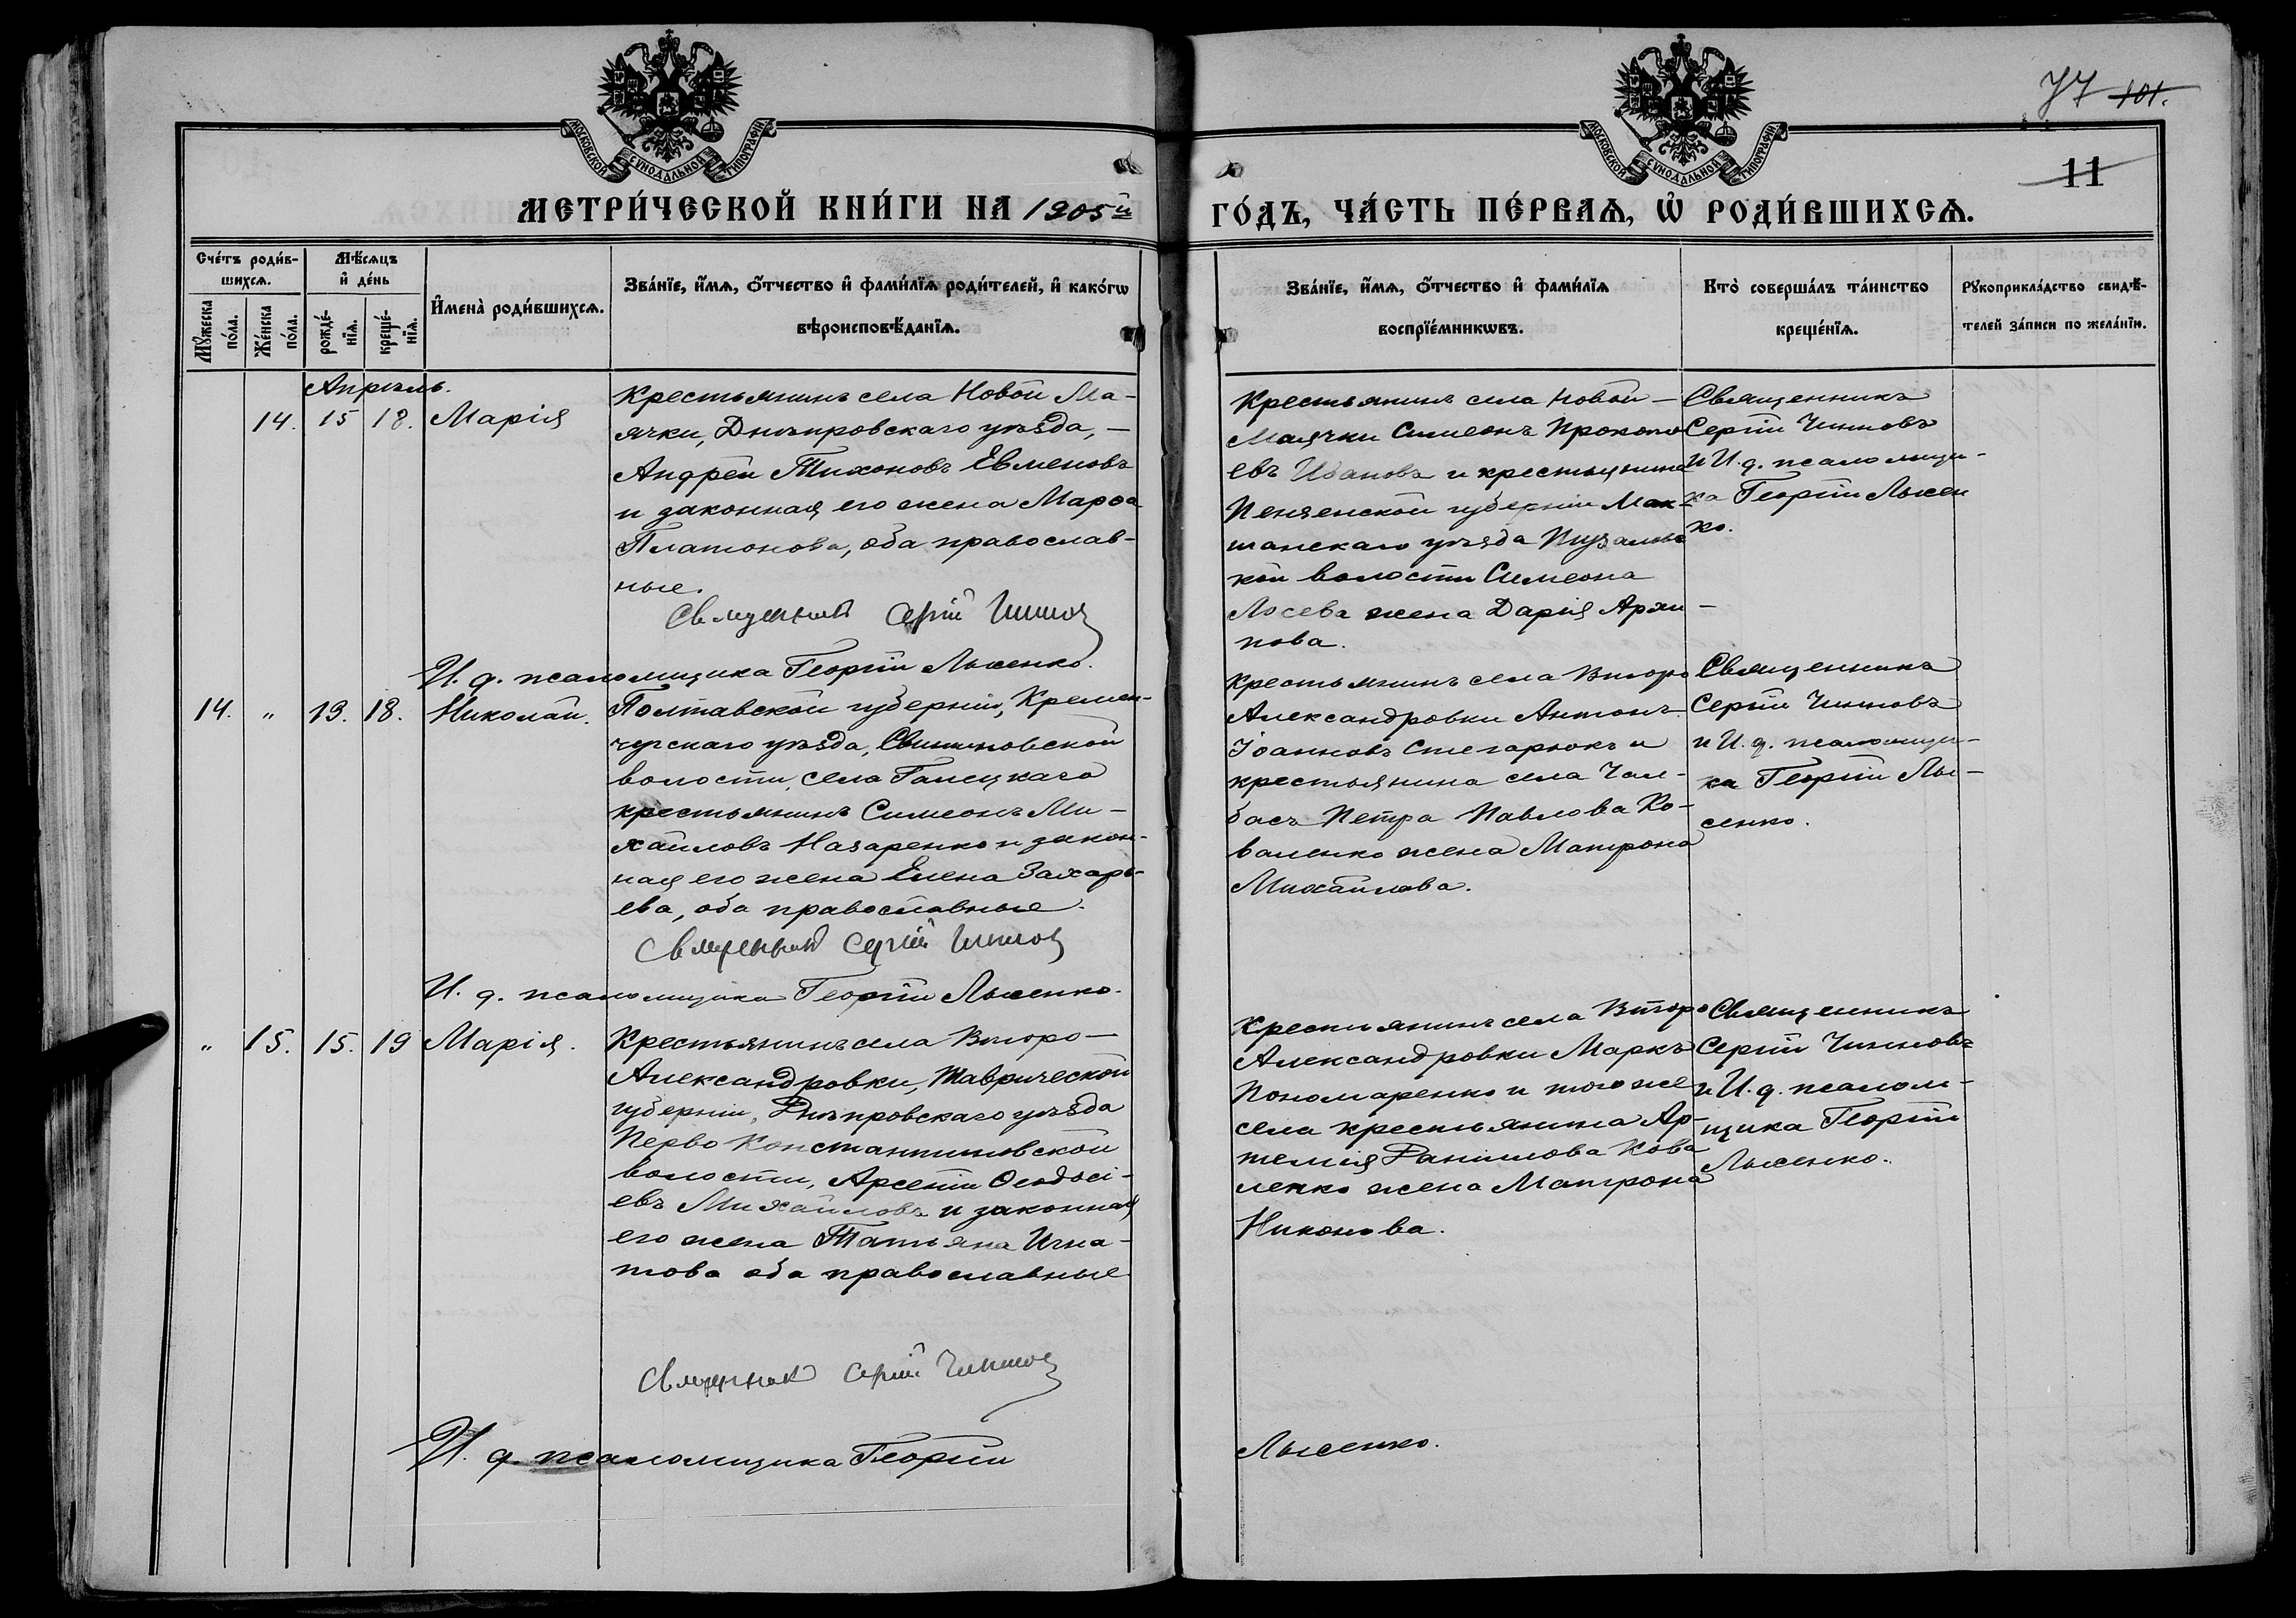 77 101.
11
МОСКОВСКОЙ СѴНОДАЛЬНОЙ ТИПОГРАФІИ
МОСКОВСКОЙ СѴНОДАЛЬНОЙ ТИПОГРАФІИ
МЕТРИ́ЧЕСКОЙ КНИ́ГИ НА 1905й
ГО́ДЪ, ЧА́СТЬ ПЕ́РВАѦ, Ѡ҆ РОДИ́ВШИХСѦ.
Сче́тъ роди́в-
шихсѧ.
Мꙋ́жеска по́ла.
Же́нска по́ла.
Мѣ́сѧцъ
и҆ де́нь
рожде́-нїѧ.
креще́-нїѧ.
И҆мена̀ роди́вшихсѧ.
Зва́нїе, и҆́мѧ, ѻ҆́тчество и҆ фами́лїѧ роди́телей, и҆ како́гѡ
вѣроисповѣ́данїѧ.
Зва́нїе, и҆́мѧ, ѻ҆́тчество и҆ фами́лїѧ
воспрїе́мникѡвъ.
Кто̀ соверша́лъ та́инство
креще́нїѧ.
Рꙋкоприкла́дство свидѣ́-
телей за́писи по жела́нїю.
Апрѣль.
14. 15 18. Марія
Крестьянинъ села Новой Ма-
ячки, Днѣпровскаго уѣзда, -
Андрей Тихоновъ Евменовъ
и законная его жена Марѳа
Платонова, оба православ-
ные.
Священникъ Сергій Чинновъ
И. д. псаломщика Георгій Лысенко.
Крестьянинъ села Новой -
Маячки Симеонъ Прокопи
евъ Ивановъ и крестьянина
Пензенской губерніи Мок-
шанскаго уѣзда
кой волости Симеона
Лосева жена Дарія Архи-
пова.
Священникъ
Сергій Чинновъ
и И. д. псаломщи-
ка Георгій Лысен
ко.
14. " 13. 18. Николай.
Полтавской губерніи, Кремен-
чугскаго уѣзда,
волости, села Галецкаго
крестьянинъ Симеонъ Ми-
хайловъ Назаренко и закон-
ная его жена Елена Захарь-
ева, оба православные.
Священникъ Сергій Чинновъ
И. д. псаломщика Георгій Лысенко.
Крестьянинъ села Второ
Александровки Антонъ
Іоанновъ и
крестьянина села Чал-
басъ Петра Павлова Ко-
валенко жена Матрона
Михайлова.
Священникъ
Сергій Чинновъ
и И. д. псаломщи-
ка Георгій Лы-
сенко.
" 15. 15. 19 Марія.
Крестьянинъ села Второ-
Александровки, Таврической
губерніи, Днѣпровскаго уѣзда
Перво Константиновской
волости, Арсеній Ѳеодосі-
евъ Михайловъ и законная
его жена Татьяна Игна-
това оба православные
Священникъ Сергій Чинновъ
И. д. псаломщика Георгій
Крестьянинъ села Второ
Александровки Маркъ
Пономаренко и того же
села крестьянина Ар-
темія Данилова Кова
ленко жена Матрона
Никонова.
Лысенко.
Священникъ
Сергій Чинновъ
и И. д. псалом-
щика Георгій
Лысенко.